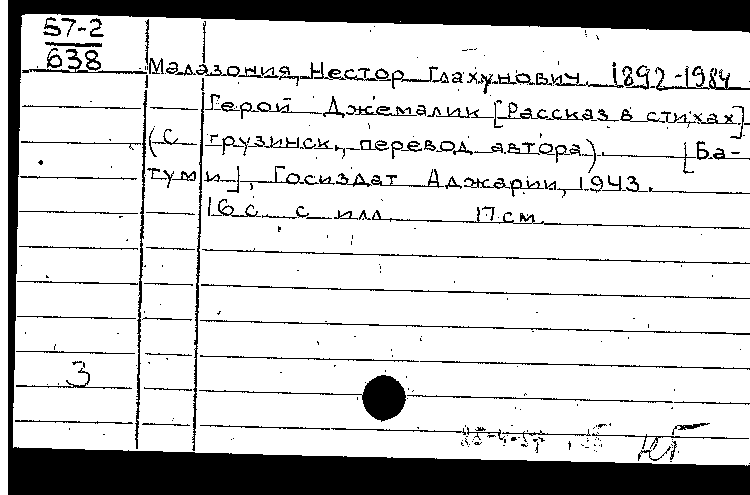 57-2
638
Малазония, Нестор Глахунович. 1892-1984
Герой Джемалик [Рассказ в стихах]
(с грузинск., перевод автора). [Ба-
туми], Госиздат Аджарии, 1943.
16 с. с илл. 17 см.
3